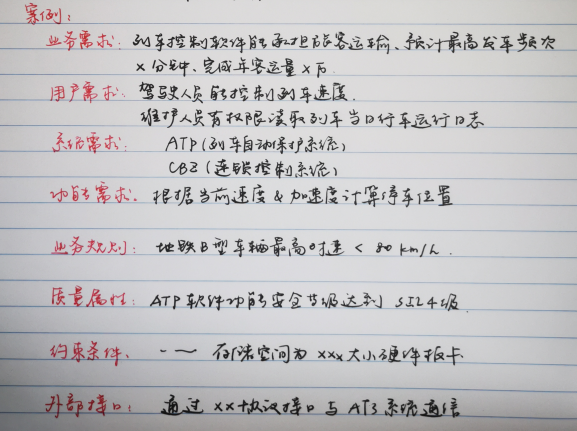 案例:
业务需求: 列车控制软件能承担旅客运输、预计最高发车频次
x分钟、完成年客运量x万
用户需求: 驾驶人员能控制列车速度.
维护人员有权限读取列车当日行车运行日志
系统需求: ATP(列车自动保护系统)
CBI(连锁控制系统)
功能需求. 根据当前速度&加速度计算停车位置
业务规则: 地铁B型车辆最高时速 < 80 km/h.
质量属性: ATP软件功能安全等级达到 SIL4级.
约束条件. 存储空间为xxx大小硬件板卡
外部接口: 通过xx协议接口与ATS系统通信